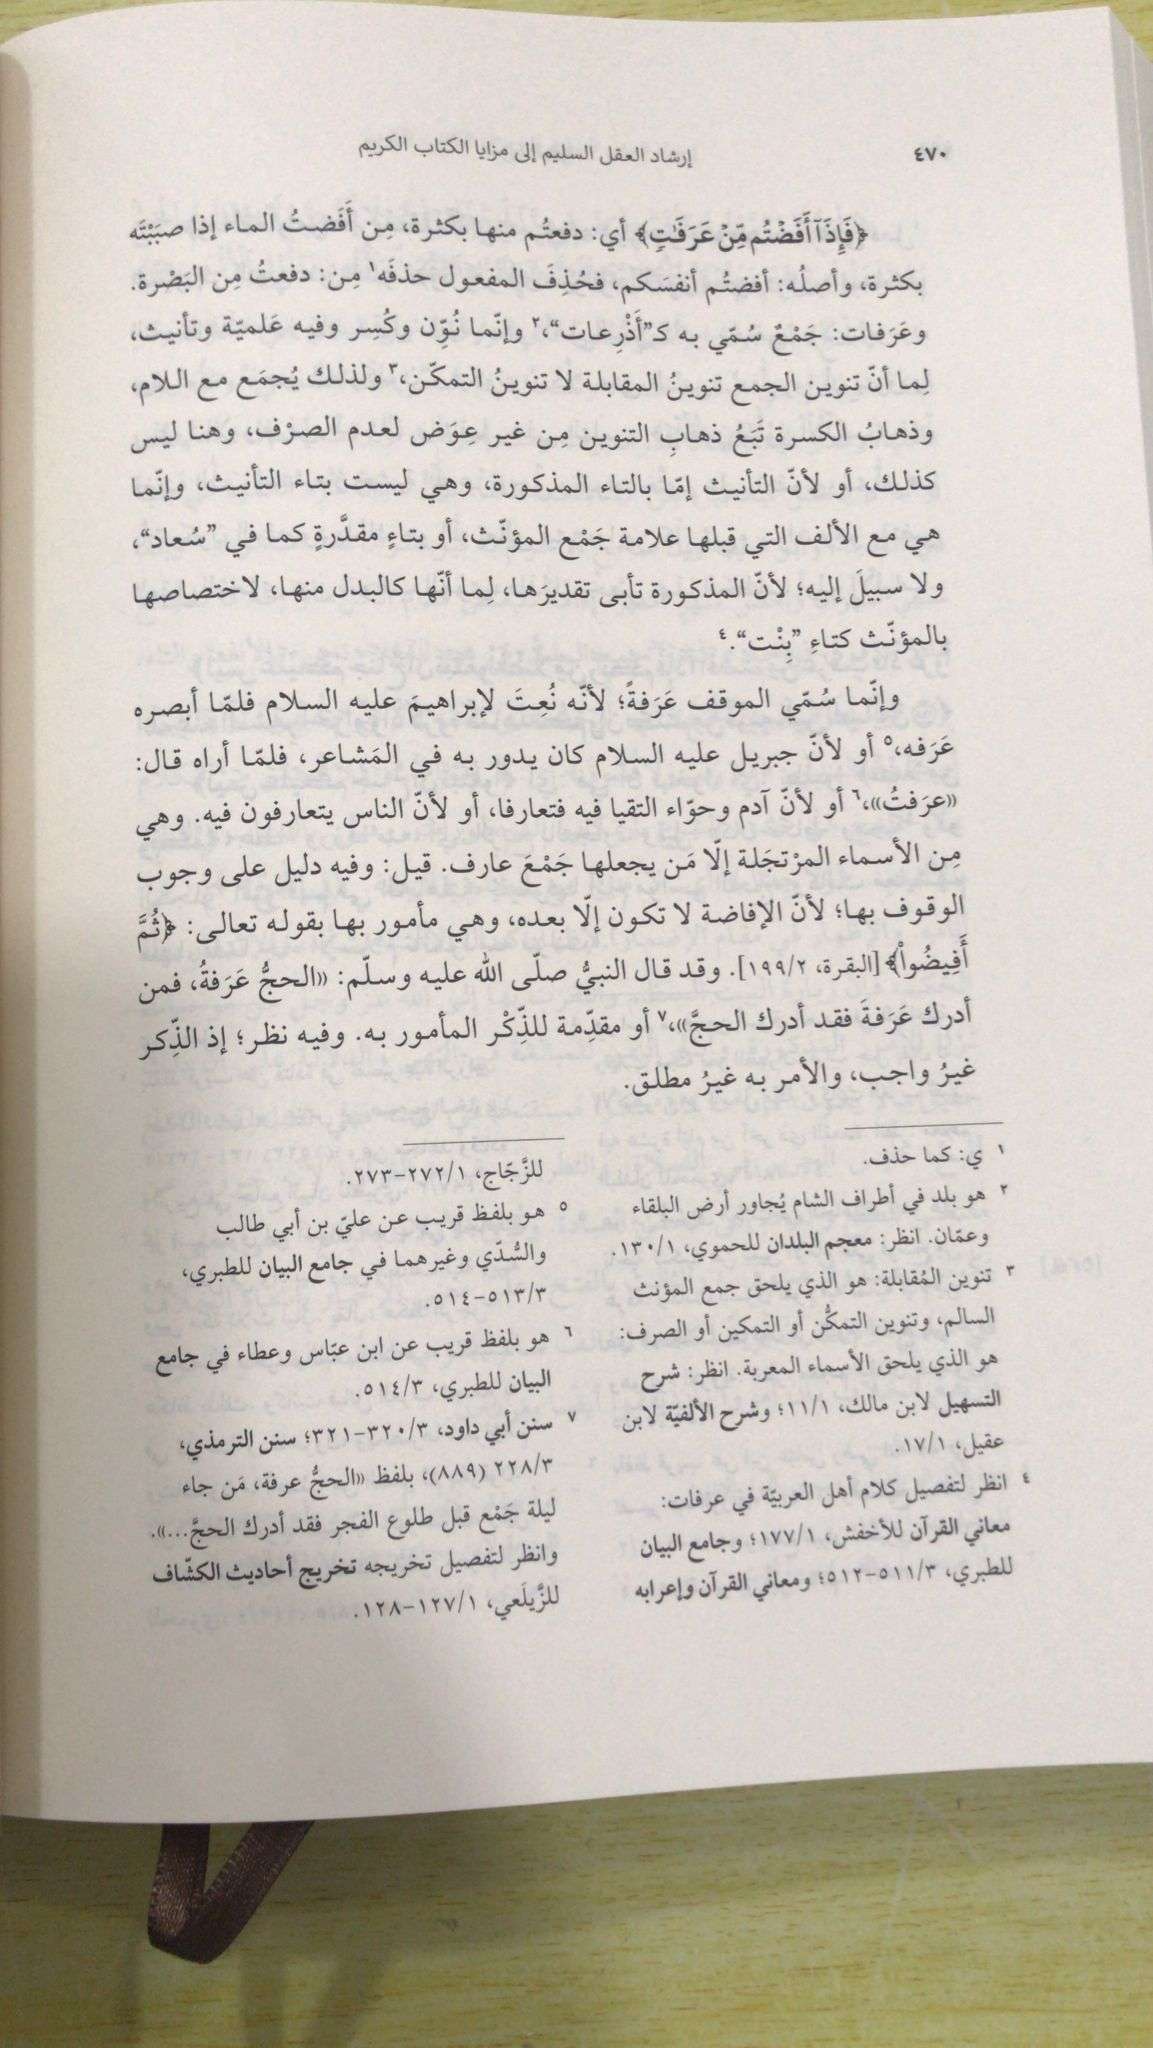 ٤٧٠
إرشاد العقل السليم إلى مزايا الكتاب الكريم
﴿فَإِذَآ أَفَضْتُم مِّنْ عَرَفَٰتٍ﴾ أي: دفعتُم منها بكثرة، مِن أَفَضتُ الماء إذا صبَبْتَه
بكثرة، وأصلُه: أفضتُم أنفسَكم، فحُذِفَ المفعول حذفَه١ مِن: دفعتُ مِن البَصْرة.
وعَرَفات: جَمْعٌ سُمّي به كـ”أَذْرِعات“،٢ وإنّما نُوِّن وكُسِر وفيه عَلميّة وتأنيث،
لِما أنّ تنوين الجمع تنوينُ المقابلة لا تنوينُ التمكّن،٣ ولذلك يُجمَع مع اللام،
وذهابُ الكسرة تَبَعُ ذهابِ التنوين مِن غير عِوَض لعدم الصرْف، وهنا ليس
كذلك، أو لأنّ التأنيث إمّا بالتاء المذكورة، وهي ليست بتاء التأنيث، وإنّما
هي مع الألف التي قبلها علامة جَمْع المؤنّث، أو بتاءٍ مقدَّرةٍ كما في ”سُعاد“،
ولا سبيلَ إليه؛ لأنّ المذكورة تأبى تقديرَها، لِما أنّها كالبدل منها، لاختصاصها
بالمؤنّث كتاءِ ”بِنْت“.٤
وإنّما سُمّي الموقف عَرَفةً؛ لأنّه نُعِتَ لإبراهيمَ عليه السلام فلمّا أبصره
عَرَفه،٥ أو لأنّ جبريل عليه السلام كان يدور به في المَشاعر، فلمّا أراه قال:
«عرَفتُ»،٦ أو لأنّ آدم وحوّاء التقيا فيه فتعارفا، أو لأنّ الناس يتعارفون فيه. وهي
مِن الأسماء المرْتجَلة إلّا مَن يجعلها جَمْعَ عارف. قيل: وفيه دليل على وجوب
الوقوف بها؛ لأنّ الإفاضة لا تكون إلّا بعده، وهي مأمور بها بقوله تعالى: ﴿ثُمَّ
أَفِيضُوا۟﴾ [البقرة، ١٩٩/٢]. وقد قال النبيُّ صلّى الله عليه وسلّم: «الحجُّ عَرَفةُ، فمن
أدرك عَرَفةَ فقد أدرك الحجَّ»،٧ أو مقدِّمة للذِّكْر المأمور به. وفيه نظر؛ إذ الذِّكر
غيرُ واجب، والأمر به غيرُ مطلق.
١ ي: كما حذف.
٢ هو بلد في أطراف الشام يُجاور أرض البلقاء
وعمّان. انظر: معجم البلدان للحموي، ١٣٠/١.
٣ تنوين المُقابلة: هو الذي يلحق جمع المؤنث
السالم، وتنوين التمكُّن أو التمكين أو الصرف:
هو الذي يلحق الأسماء المعربة. انظر: شرح
التسهيل لابن مالك، ١١/١؛ وشرح الألفيّة لابن
عقيل، ١٧/١.
٤ انظر لتفصيل كلام أهل العربيّة في عرفات:
معاني القرآن للأخفش، ١٧٧/١؛ وجامع البيان
للطبري، ٥١١/٣-٥١٢؛ ومعاني القرآن وإعرابه
للزَّجّاج، ٢٧٢/١-٢٧٣.
٥ هو بلفظ قريب عن عليّ بن أبي طالب
والسُّدّي وغيرهما في جامع البيان للطبري،
٥١٣/٣-٥١٤.
٦ هو بلفظ قريب عن ابن عبّاس وعطاء في جامع
البيان للطبري، ٥١٤/٣.
٧ سنن أبي داود، ٣٢٠/٣-٣٢١؛ سنن الترمذي،
٢٢٨/٣ (٨٨٩)، بلفظ «الحجُّ عرفة، مَن جاء
ليلة جَمْع قبل طلوع الفجر فقد أدرك الحجَّ...».
وانظر لتفصيل تخريجه تخريج أحاديث الكشّاف
للزَّيلَعي، ١٢٧/١-١٢٨.